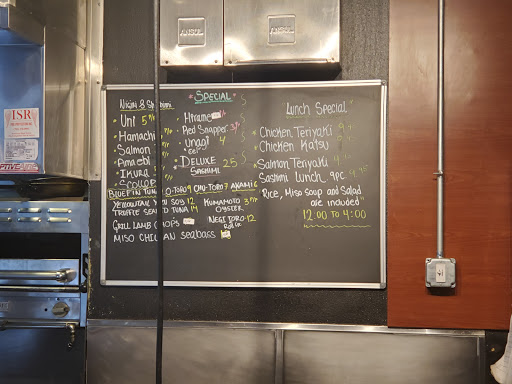 ANSUL
ANSUL
ISR
Nigiri & Sashimi
Uni 5
Hamachi
Salmon
Amaebi
Ikura
Scallop
* Special *
Hirame
Red Snapper
Unagi 4
eel
Deluxe 25
Sashimi
Lunch Special
Chicken Teriyaki
Chicken Katsu
Salmon Teriyaki
Sashimi Lunch, 9pc
Rice, Miso Soup and Salad
are included
12:00 to 4:00
BLUEFIN TUNA O-TORO 9 CHU-TORO 7 AKAMI 6
YELLOWTAIL YUZU SOY 12
TRUFFLE SEARED TUNA 14
KUMAMOTO
OYSTER
GRILL LAMB CHOPS
NEGITORO 12
MISO CHILEAN seabass